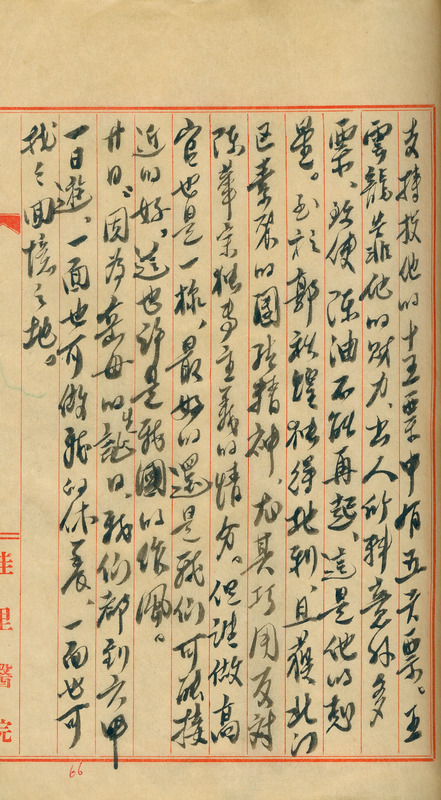 支持投他的十五票中有五天票。王
雲龍告非他的財力、出人所料意外多
票、致使陳油不能再起、這是他的
至於郭秋煌独得北利、且獲北門
区素來的團結精神、尤其巧用反對
陳華宗独専主義的情分。但誰做高
官也是一樣、最好的還是我们可能接
近的好、這也許是我國的作風。
廿日、因為岳母的生誕日、我们都到六甲
一日遊、一面也可做我的休養、一面也可
我之回憶之地。
佳里醫院
66